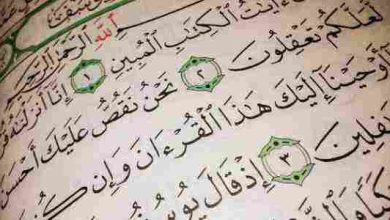 اللَّهِ الرَّحْمَٰنِ الرَّحِيمِ
ءَايَٰتُ الْكِتَٰبِ الْمُبِينِ ١ إِنَّا أَنزَلْنَٰهُ
لَّعَلَّكُمْ تَعْقِلُونَ ٢ نَحْنُ نَقُصُّ عَلَيْكَ أَحْسَنَ
أَوْحَيْنَا إِلَيْكَ هَٰذَا الْقُرْءَانَ وَإِن كُن
فِلِينَ ٣ إِذْ قَالَ يُوسُ